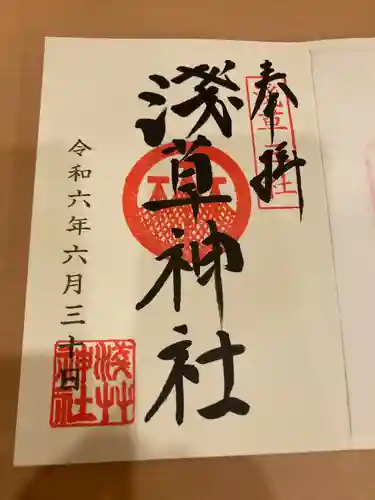 奉拝
浅草神社
令和六年六月三十日
浅草
神社